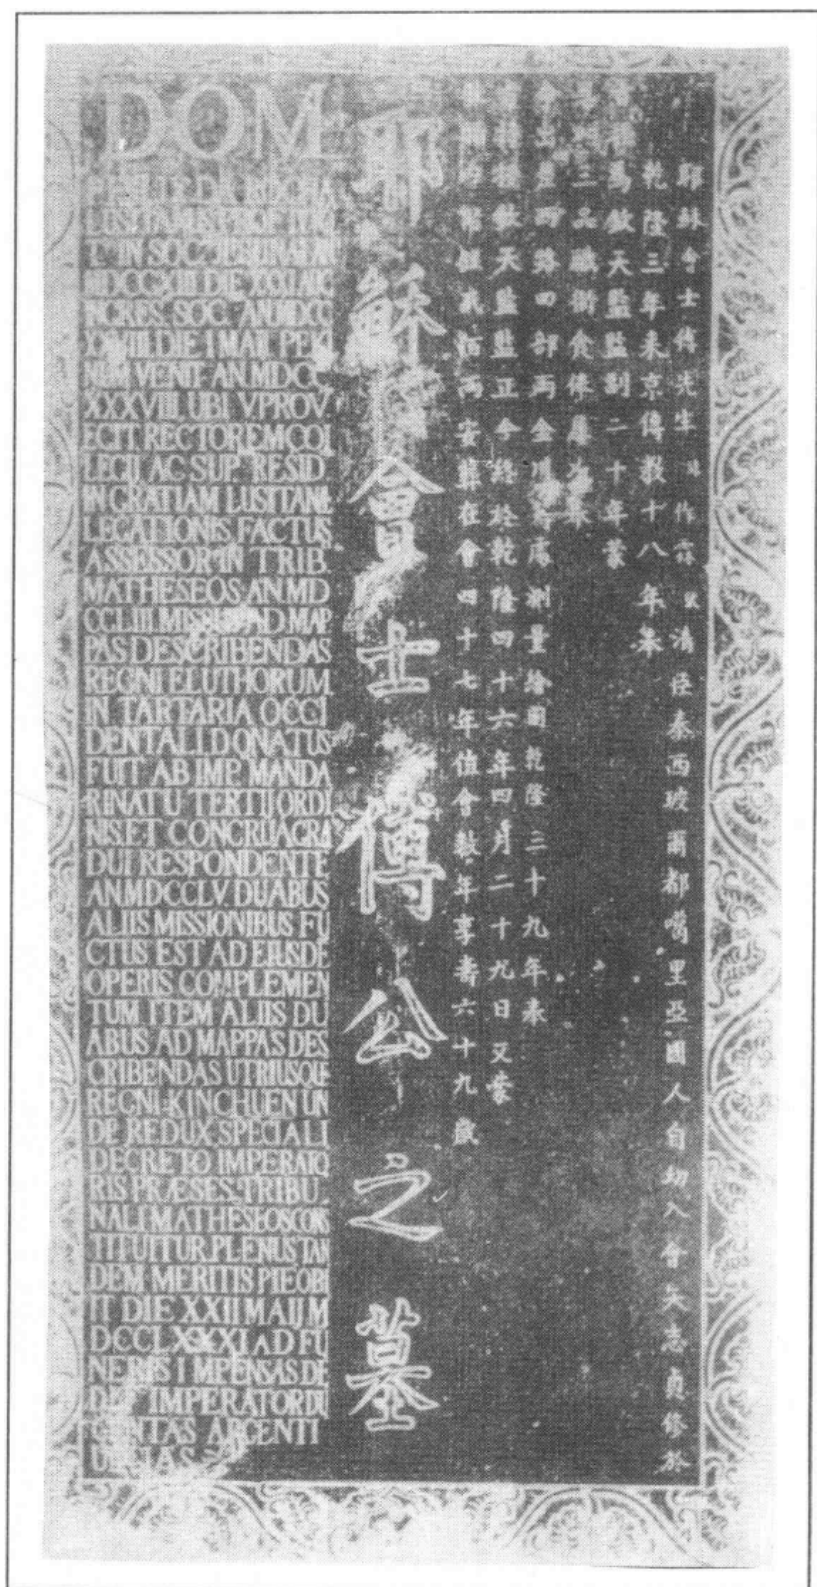 DOM
LUSITANUS PROF
IN SOC
MDCCXIII DIE XXXI AUG
INGRES. SOC. AN. MDCC
XXVIII DIE I MAII PEKI
NUM VENIT AN. MDCC
XXXVIII. UBI. V. PROV.
EGIT RECTOREM COL
LEGII AC SUP. RESID.
IN GRATIAM LUSITANÆ
LEGATIONIS FACTUS
ASSESSOR IN TRIB.
MATHESEOS AN. MD
CCLIII MISSUS AD MAP
PAS DESCRIBENDAS
REGNI ELUTHORUM
IN TARTARIA OCCI
DENTALI DONATUS
FUIT AB IMP. MANDA
RINATU TERTII ORDI
NIS ET CONGRUA GRA
DUI RESPONDENTE
AN. MDCCLV. DUABUS
ALIIS MISSIONIBUS FU
CTUS EST AD EIUSDE
OPERIS COMPLEMEN
TUM ITEM ALIIS DU
ABUS AD MAPPAS DES
CRIBENDAS UTRIUSQUE
REGNI KINCHUEN UN
DE REDUX SPECIALI
DECRETO IMPERATO
RIS PRÆSES TRIBU
NALI MATHESEOS CONS
TITUITUR PLENUS TAN
DEM MERITIS PIE OBI
IT DIE XXII MAIJ M
DCCLXXXI AD FU
NERIS IMPENSAS DE
DIT IMPERATOR DU
CENTAS ARGENTI
UNCIAS
耶穌會士傅公之墓
耶穌會士傅先生 作霖 清 泰西玻爾都噶里亞國人自幼入會矢志貞修於
乾隆三年來京傳教十八年奉
為欽天監監副二十年蒙
三品職銜食俸
出差四路回部兩金川等處測量繪圖乾隆三十九年奉
授欽天監監正今終於乾隆四十六年四月二十九日又蒙
帑銀貳佰兩安葬在會四十七年值會數年享壽六十九歲